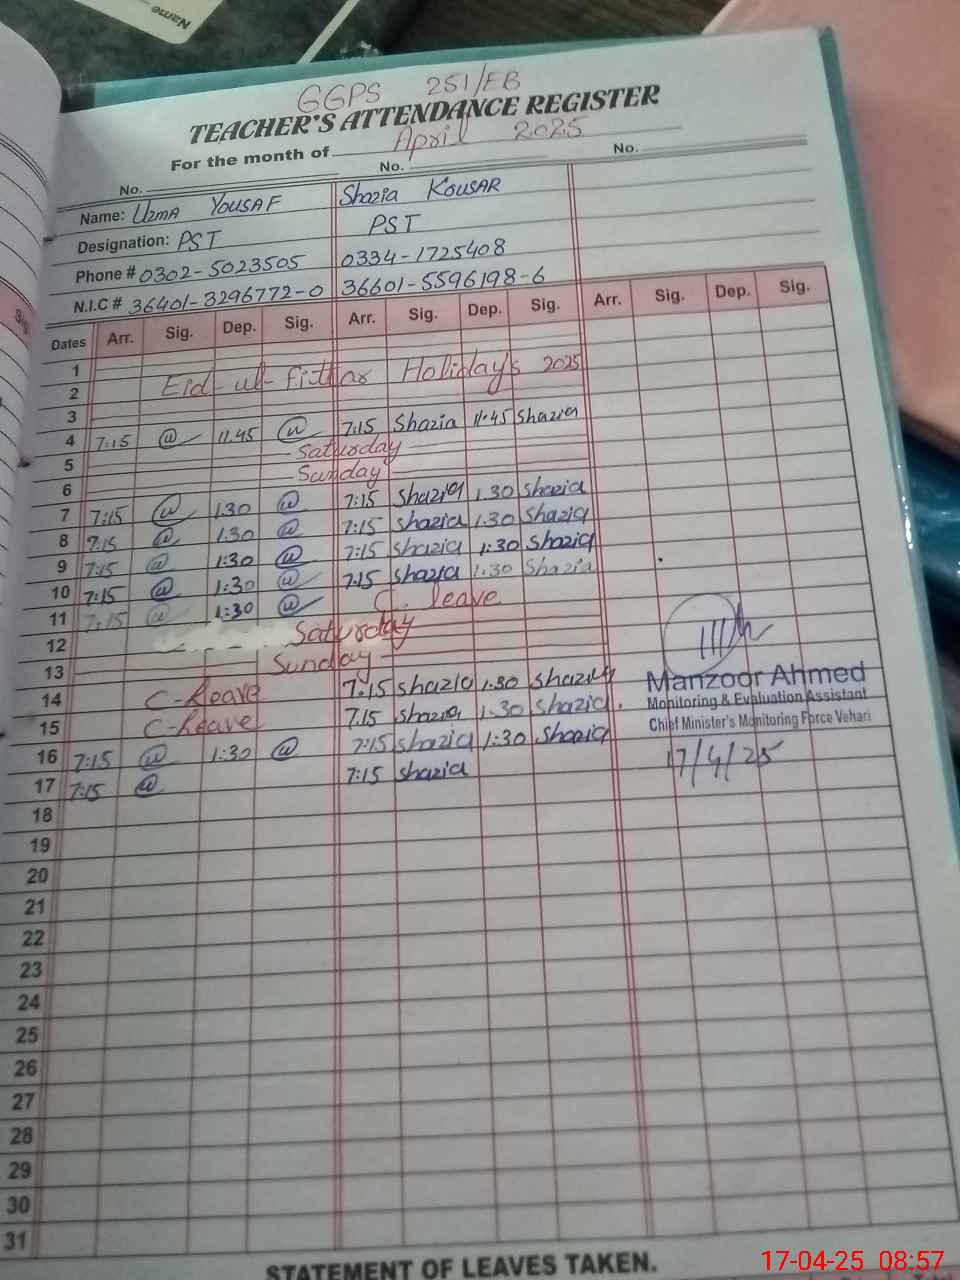 Name
GGPS 251/EB
TEACHER'S ATTENDANCE REGISTER
For the month of April 2025
No. No. No.
Name: Uzma Yousaf Shazia Kousar
Designation: PST PST
Phone # 0302-5023505 0334-1725408
N.I.C # 36401-3296772-0 36601-5596198-6
Dates Arr. Sig. Dep. Sig. Arr. Sig. Dep. Sig. Arr. Sig. Dep. Sig.
1
2 Eid-ul-Fithar Holidays 2025
3
4 7:15 11.45 7:15 Shazia 11.45 Shazia
5 Saturday
6 Sunday
7 7:15 1.30 7:15 Shazia 1.30 Shazia
8 7:15 1:30 7:15 Shazia 1.30 Shazia
9 7:15 1:30 7:15 Shazia 1:30 Shazia
10 7:15 1:30 7:15 Shazia 1:30 Shazia
11 7:15 1:30 C. leave
12 Saturday
13 Sunday
14 C-Leave 7:15 Shazia 1:30 Shazia
15 C-Leave 7:15 Shazia 1:30 Shazia
16 7:15 1:30 7:15 Shazia 1:30 Shazia
17 7:15 7:15 Shazia
Manzoor Ahmed
Monitoring & Evaluation Assistant
Chief Minister's Monitoring Force Vehari
17/4/25
18
19
20
21
22
23
24
25
26
27
28
29
30
31
STATEMENT OF LEAVES TAKEN.
17-04-25 08:57